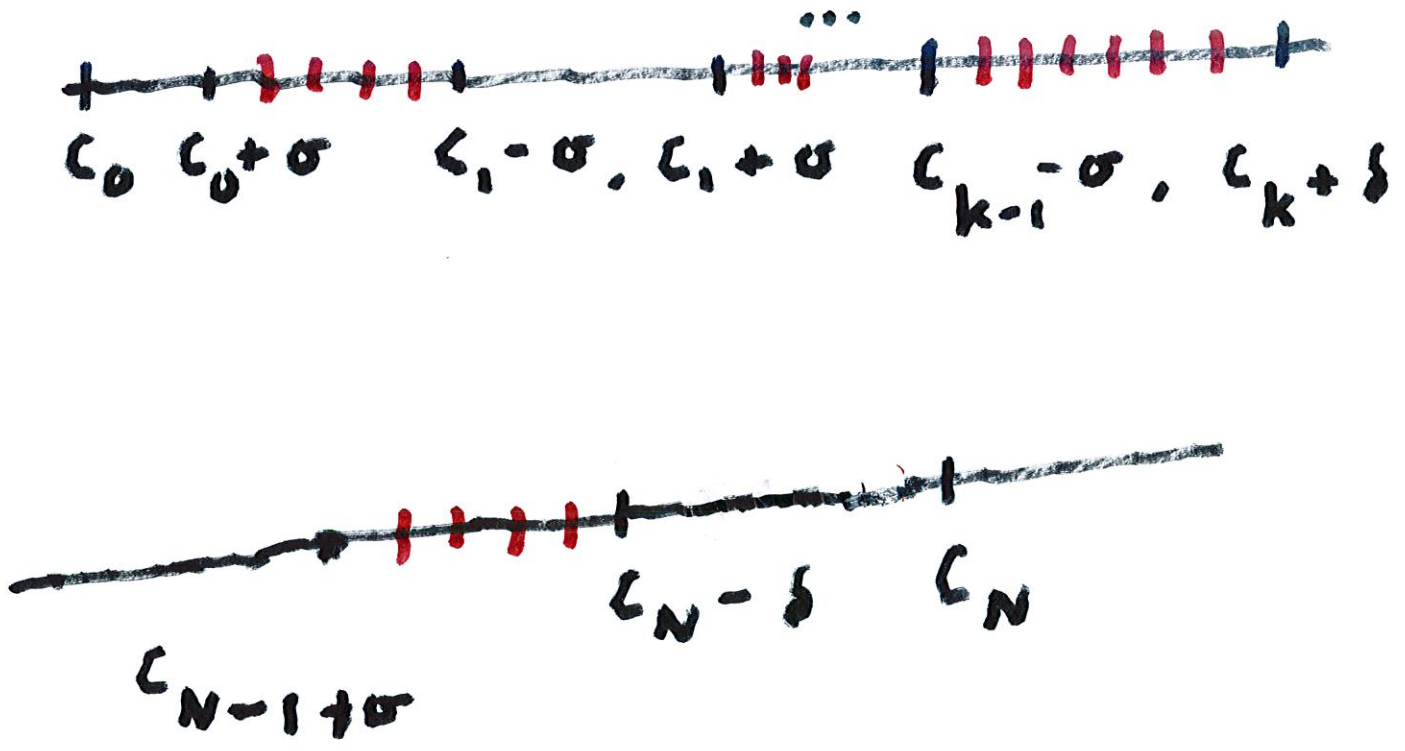 ...
C₀ C₀+σ C₁-σ, C₁+σ Cₖ₋₁-σ, Cₖ+δ
C_N-δ C_N
C_{N-1+σ}